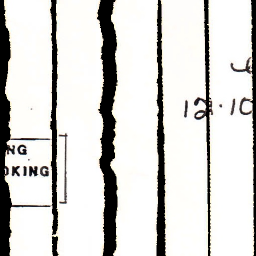 NG
OKING
12.10